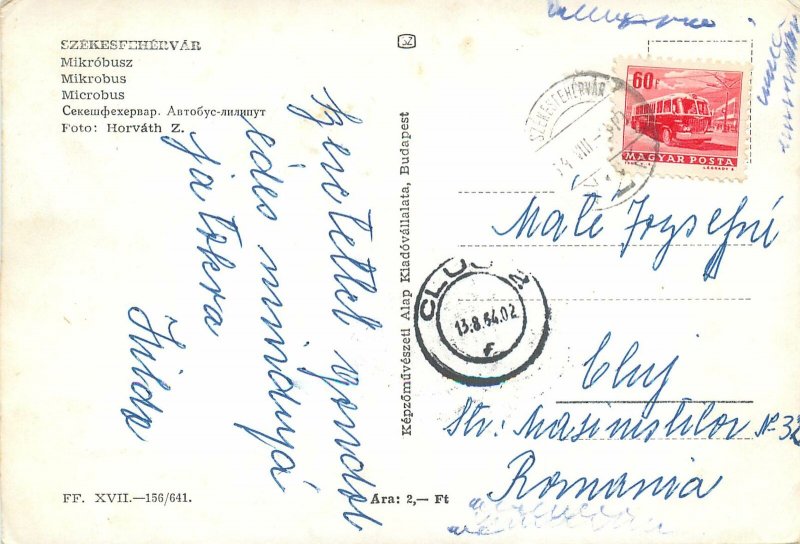 SZÉKESFEHÉRVÁR
Mikróbusz
Mikrobus
Microbus
Секешфехервар. Автобус-лилипут
Foto: Horváth Z.
Szeretettel gondol
édes mindnyá
jatokra
Hilda
FF. XVII.—156/641.
Ara: 2,— Ft
Képzőművészeti Alap Kiadóvállalata, Budapest
SZ
60f
MAGYAR POSTA
SZÉKESFEHÉRVÁR
CLUJ 2
13.8.64.02
Male Jozsefné
Cluj
Str: Masinistilor No 32
Romania